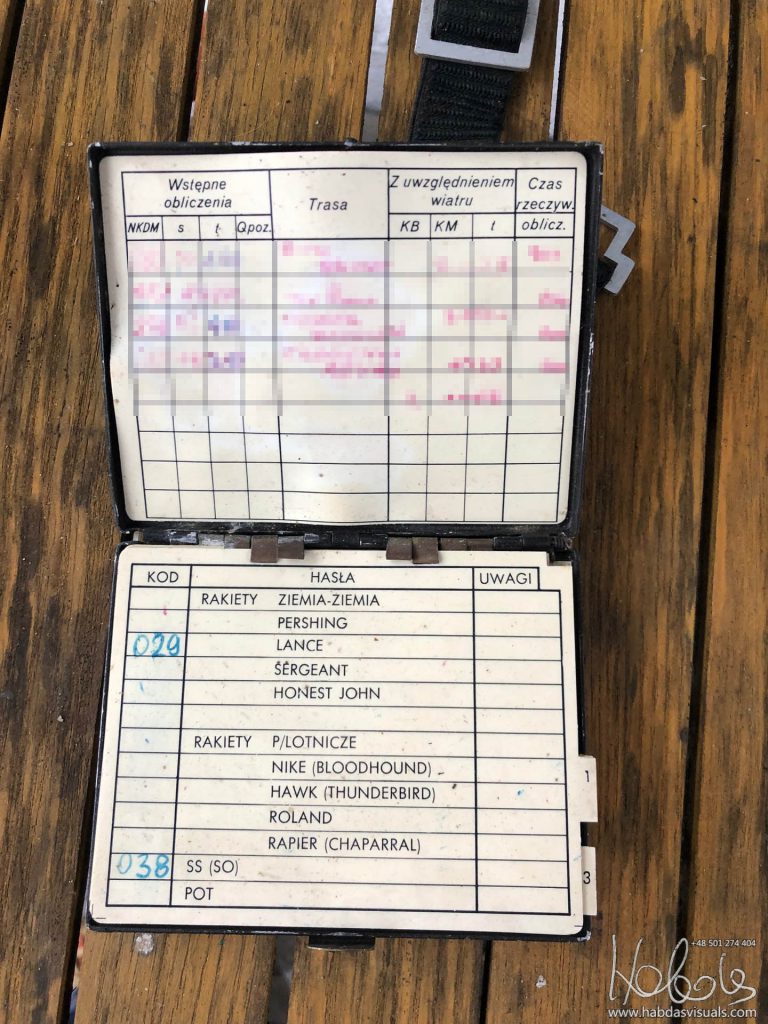 Wstępne obliczenia Trasa Z uwzględnieniem wiatru Czas rzeczyw. oblicz.
NKDM s t Qpoz. KB KM t
KOD HASŁA UWAGI
RAKIETY ZIEMIA-ZIEMIA
PERSHING
029 LANCE
SERGEANT
HONEST JOHN
RAKIETY P/LOTNICZE
NIKE (BLOODHOUND)
1
HAWK (THUNDERBIRD)
ROLAND
RAPIER (CHAPARRAL)
038 SS (SO)
3
POT
+48 501 274 404
www.habdasvisuals.com